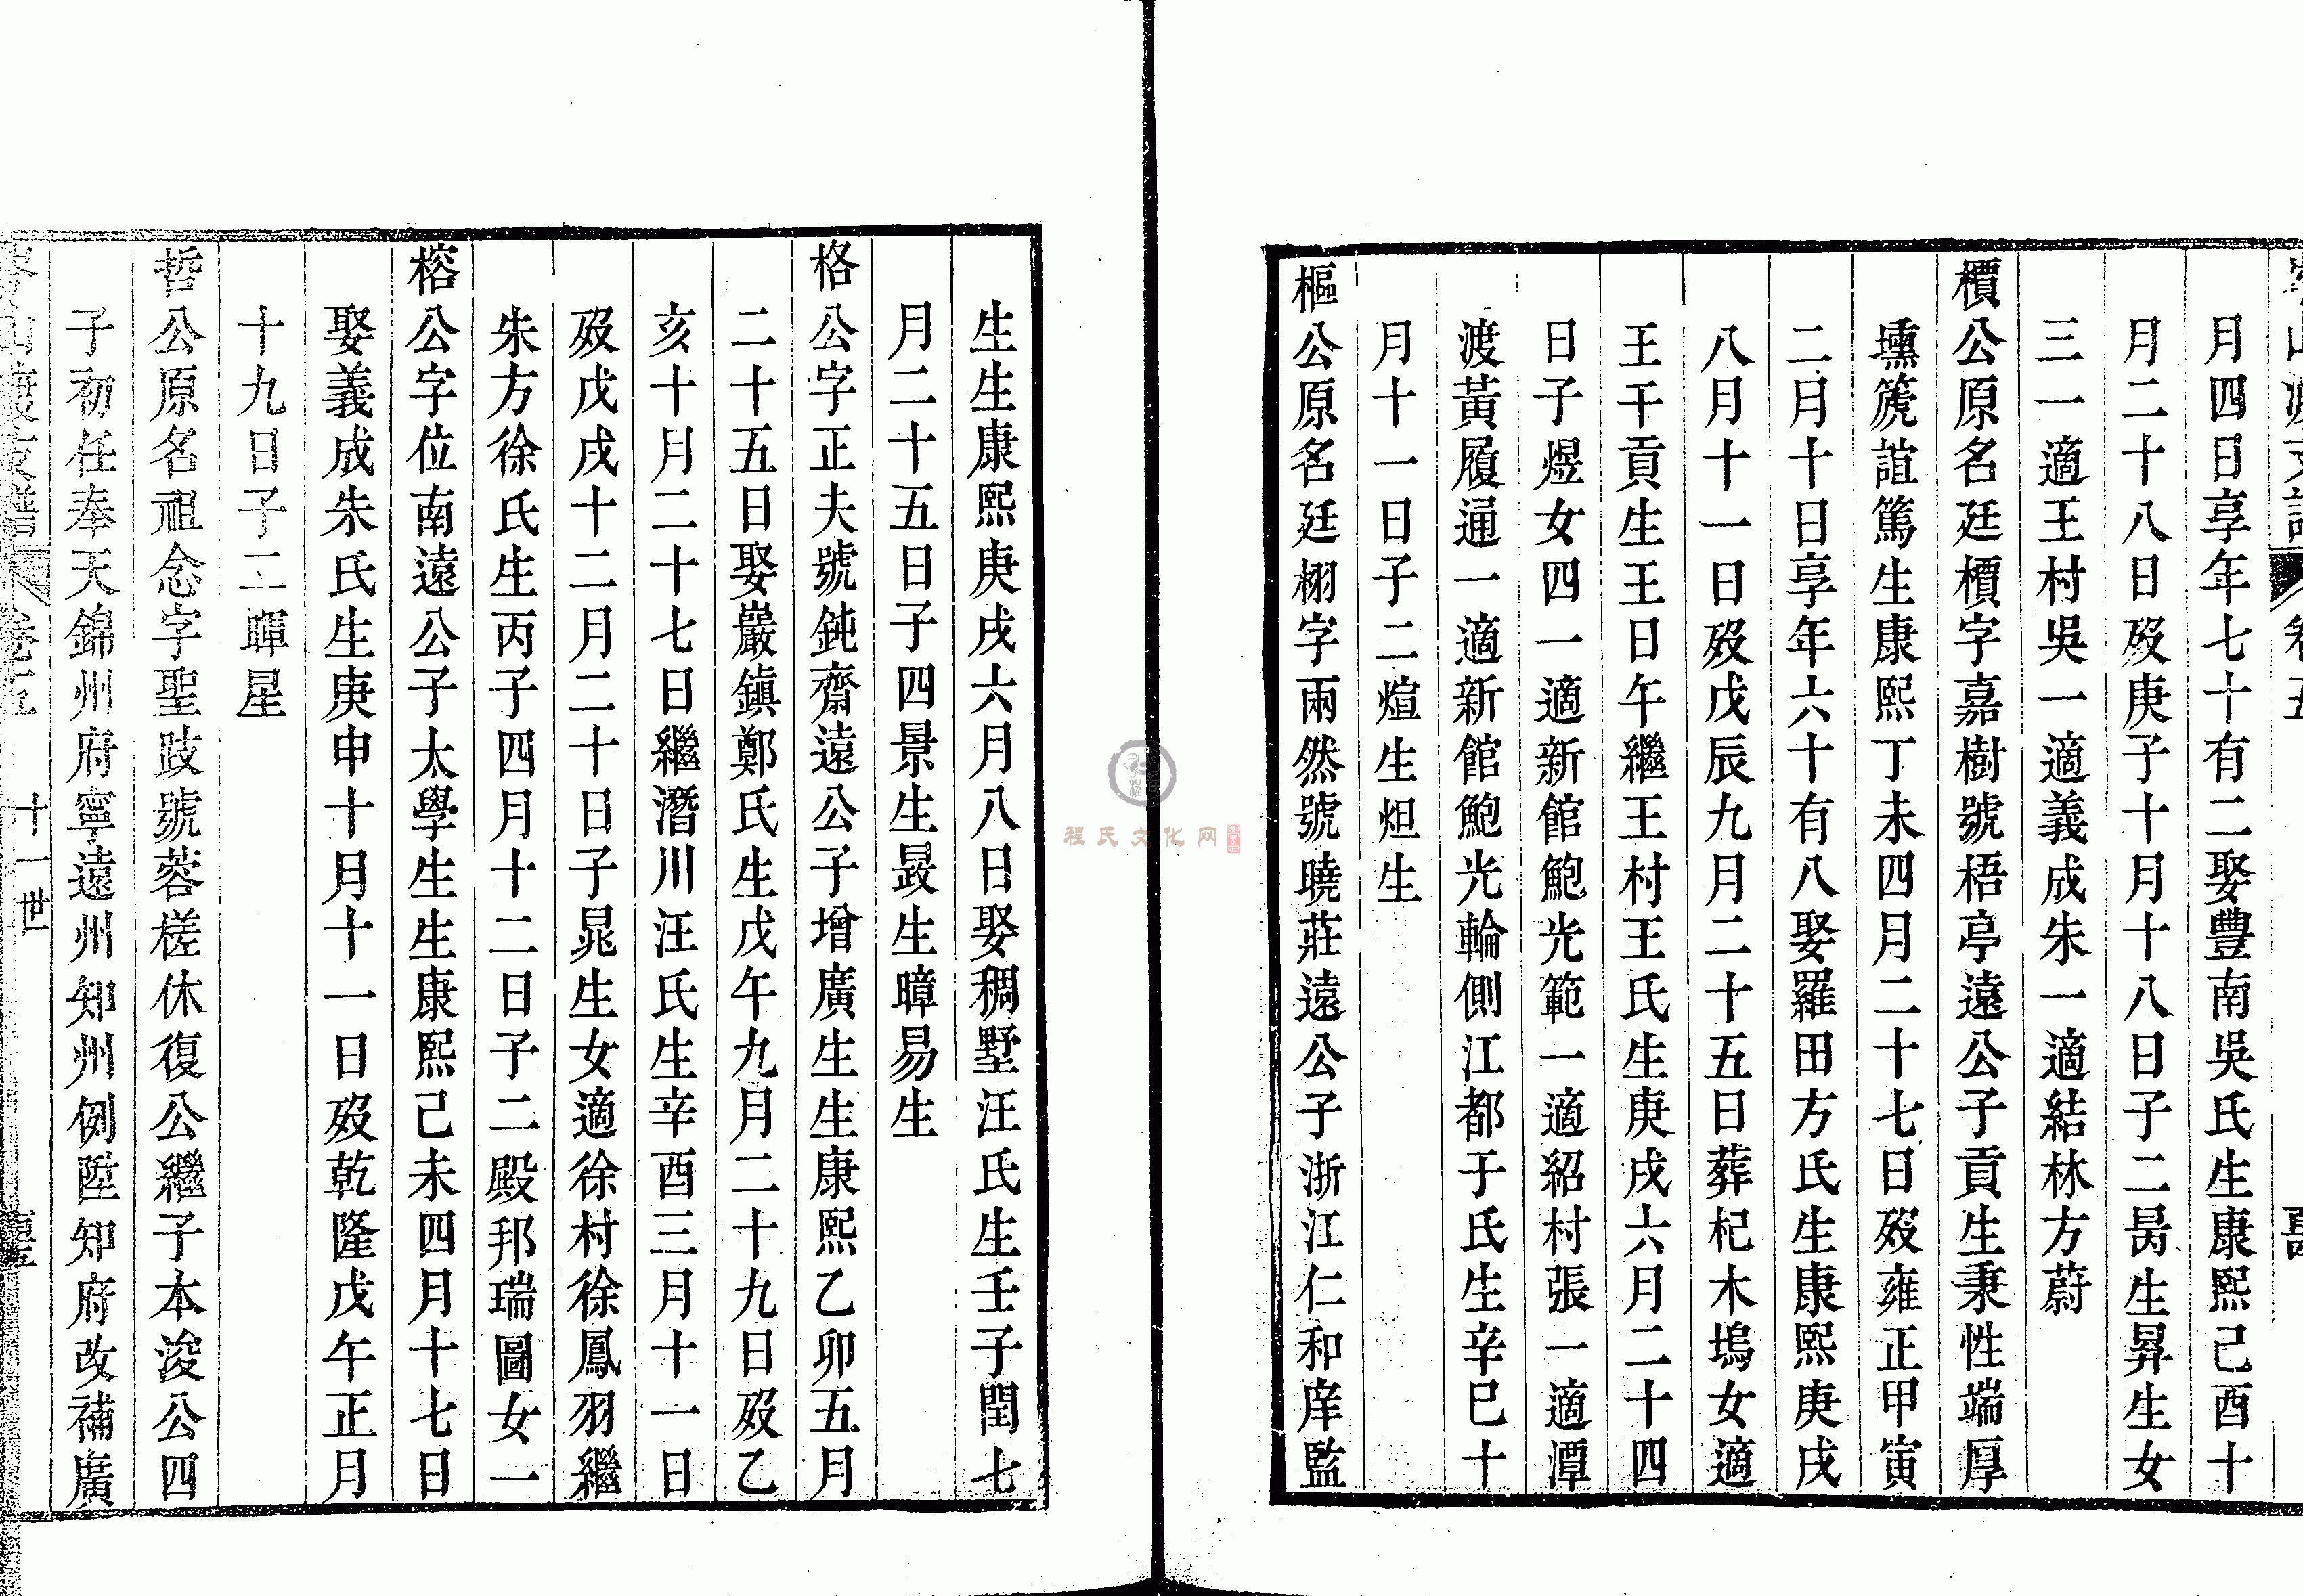 月四日享年七十有二娶豐南吳氏生康熙己酉十
月二十八日歿庚子十月十八日子二昺生昪生女
三一適王村吳一適義成朱一適結林方蔚
檟公原名廷檟字嘉樹號梧亭遠公子貢生秉性端厚
壎篪誼篤生康熙丁未四月二十七日歿雍正甲寅
二月十日享年六十有八娶羅田方氏生康熙庚戌
八月十一日歿戊辰九月二十五日葬杞木塢女適
王干貢生王日午繼王村王氏生庚戌六月二十四
日子煜女四一適新館鮑光範一適紹村張一適潭
渡黃履通一適新館鮑光輪側江都于氏生辛巳十
月十一日子二煊生炟生
樞公原名廷栩字兩然號曉莊遠公子浙江仁和庠監
生生康熙庚戌六月八日娶稠墅汪氏生壬子閏七
月二十五日子四景生晸生暲易生
格公字正夫號鈍齋遠公子增廣生生康熙乙卯五月
二十五日娶巖鎮鄭氏生戊午九月二十九日歿乙
亥十月二十七日繼潛川汪氏生辛酉三月十一日
歿戊戌十二月二十日子晁生女適徐村徐鳳羽繼
朱方徐氏生丙子四月十二日子二殿邦瑞圖女一
榕公字位南遠公子太學生生康熙己未四月十七日
娶義成朱氏生庚申十月十一日歿乾隆戊午正月
十九日子二暉星
哲公原名祖念字聖跂號蓉槎休復公繼子本浚公四
子初任奉天錦州府寧遠州知州例陞知府改補廣
十一世
程氏文化网